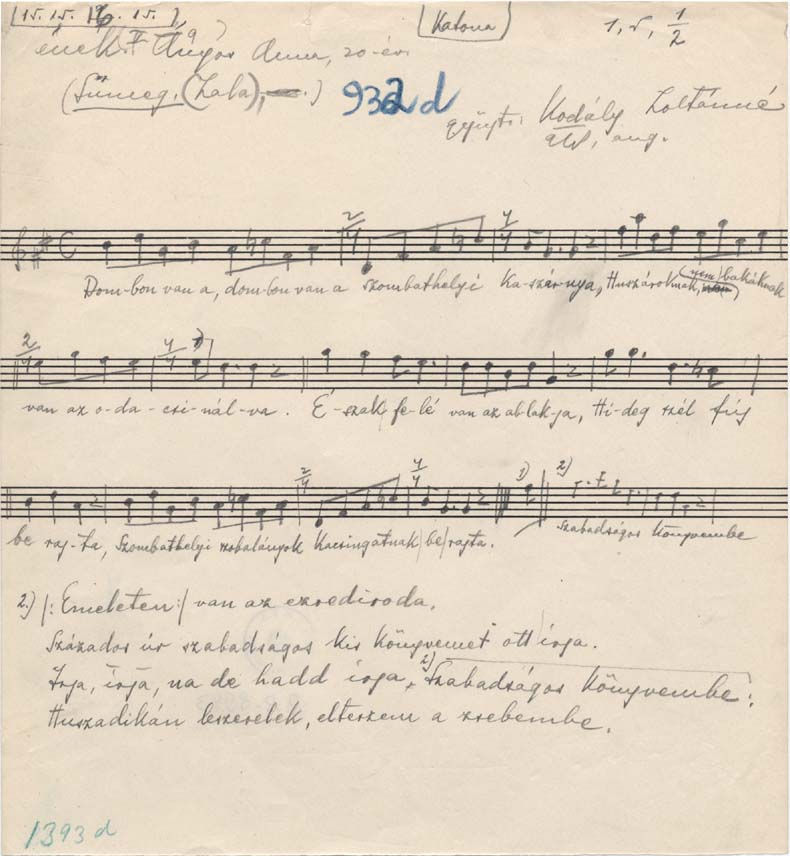 [15. 15. 15.]
(Katona)
1, 5, 1/2
ének. Anna, 20 év.
(Sümeg, (Zala), )
932 d
gyüjt. Kodály Zoltánné
aug.
2/4 4/4
Dom-bon van a, dom-bon van a szombathelyi Ka-szár-nya, Huszároknak, (nem) bakáknak
2/4 4/4 1)
van az o-da-csi-nál-va. É-szak fe-lé van az ab-lak-ja, Hi-deg szél fúj
2/4 4/4 1) 2)
be raj-ta, Szombathelyi szobalányok Kacsingatnak be rajta. Szabadságos Könyvembe
2.) |: Emeleten :| van az ezrediroda,
Százados úr szabadságos kis Könyvemet ott írja.
Írja, írja, na de hadd írja, 2) Szabadságos Könyvembe:
Huszadikán leszerelek, elteszem a zsebembe.
1393 d